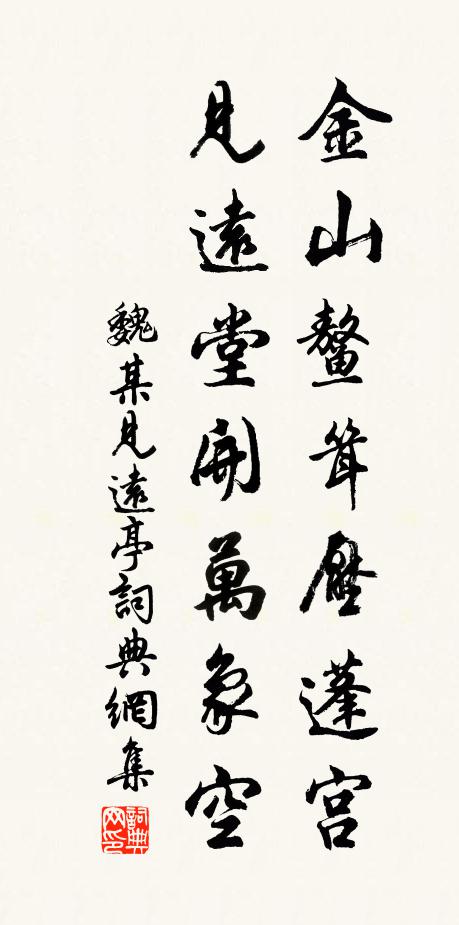 金山鼇聳壓蓬宮
見遠堂開萬象空
魏某見遠亭詞典網集
詞典网印